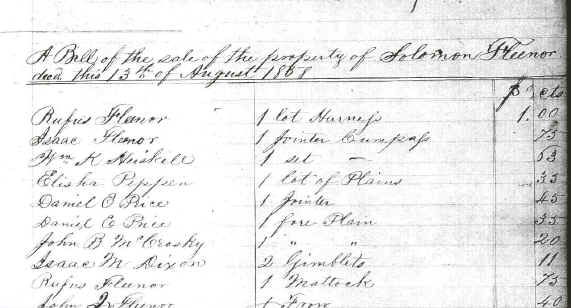 A Bill of the sale of the property of Solomon Fleenor
decd this 13th of August 1868
$ cts
Rufus Fleenor 1 lot Harness 1.00
Isaac Flenor 1 Jointer Cumpass 75
Wm K Heiskell 1 set — 53
Elisha Peppen 1 lot of Plains 35
Daniel C Price 1 Jointer 45
Daniel C Price 1 fore Plain 35
John B McCrosky 1 " " 20
Isaac M Dixon 2 Gimblets 11
Rufus Fleenor 1 Mattock 75
John Fleenor 1 Frow 40